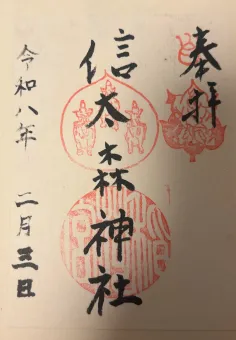 奉拝
信太森神社
令和八年 二月三日